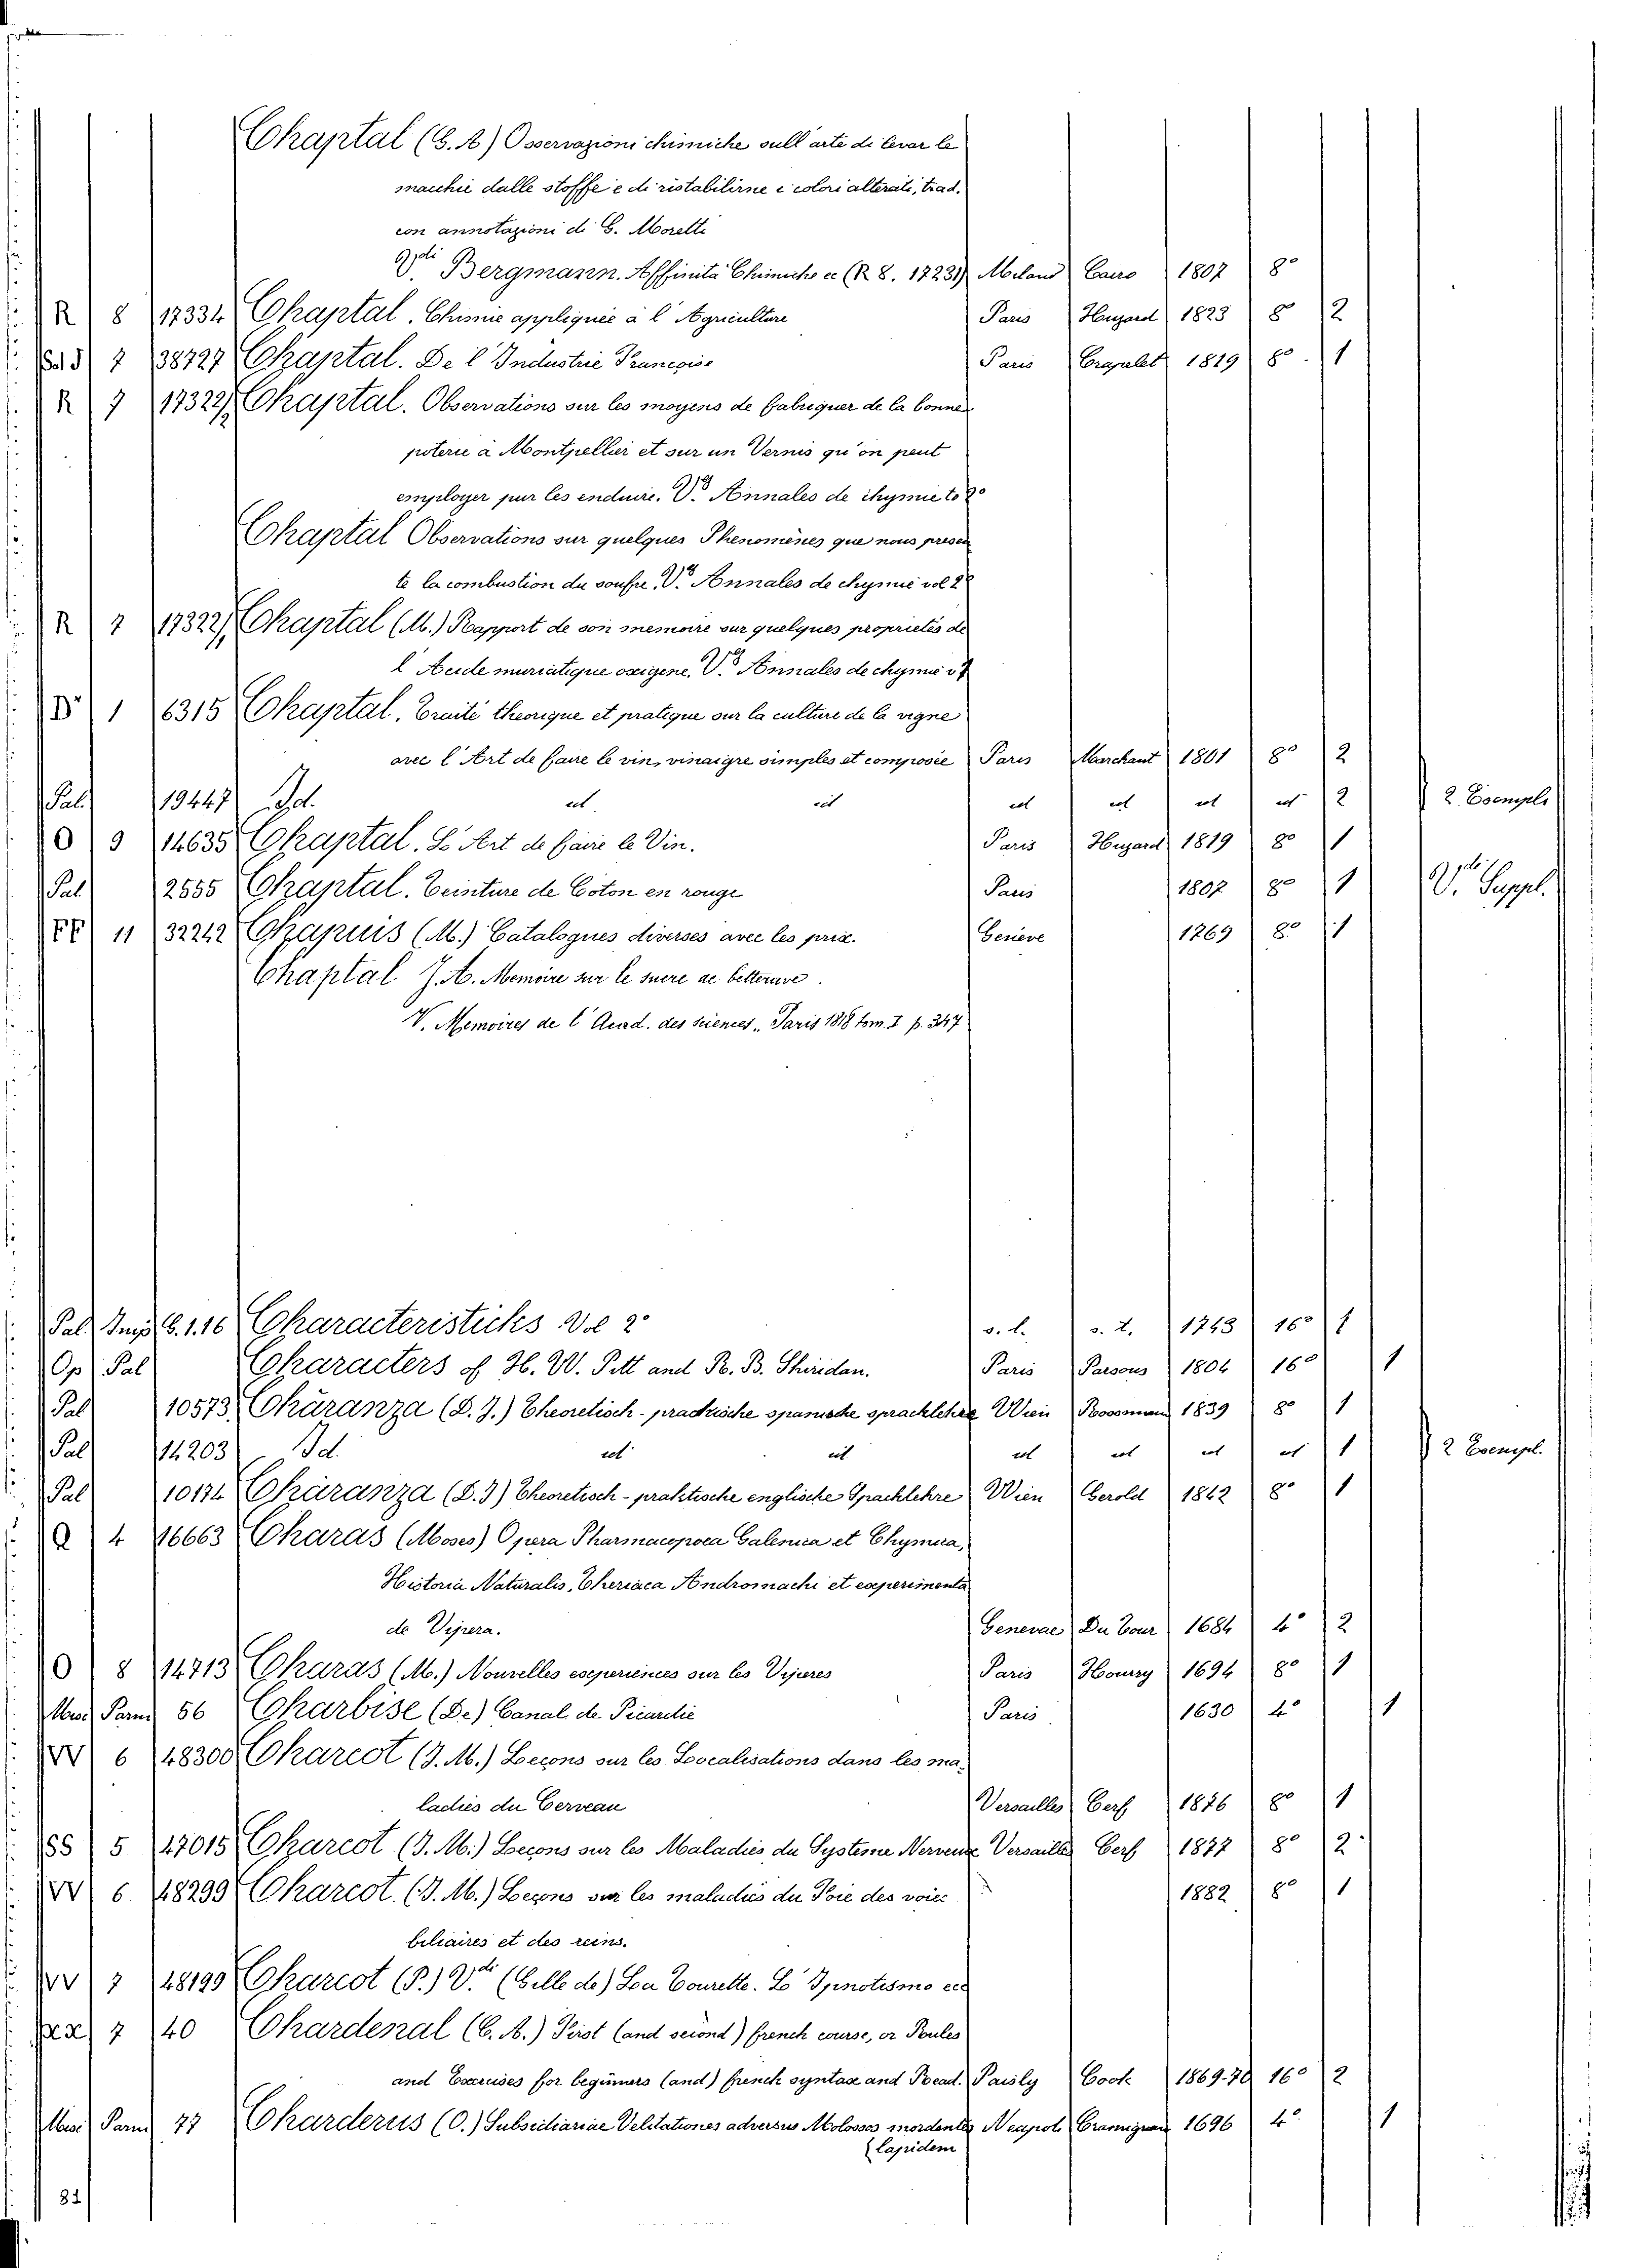 Chaptal (G. A) Osservazioni chimiche sull'arte di levar le
macchie dalle stoffe e di ristabilirne i colori alterati, trad.
con annotazioni di G. Moretti
Vdi Bergmann. Affinita Chimiche ec (R 8. 17231) Milano Cairo 1807 8°
R 8 17334 Chaptal. Chimie appliquée à l'Agriculture Paris Huzard 1823 8° 2
7 38727 Chaptal. De l'Industrie Françoise Paris Crapelet 1819 8° 1
R 7 17322/ Chaptal. Observations sur les moyens de fabriquer de la bonne
poterie a Montpellier et sur un Vernis qu'on peut
employer pur les enduire. V. Annales de chymie to 2°
Chaptal Observations sur quelques Phenomènes que nous presen
te la combustion du soufre. V. Annales de chymie vol 2
R 7 17322/ Chaptal (M.) Rapport de son memoire sur quelques proprietés de
l'Acide muriatique oxigene. V. Annales de chymie
1 6315 Chaptal. Traité theorique et pratique sur la culture de la vigne
avec l'Art de faire le vin, vinaigre simples et composée Paris Marchant 1801 8° 2
Pal. 19447 Id. id id id id id id 2 2 Esempl.
O 9 14635 Chaptal. L'Art de faire le Vin. Paris Huzard 1819 8° 1
Pal 2555 Chaptal. Teinture de Coton en rouge Paris 1807 8° 1 Vdi Suppl.
FF 11 32242 Chapuis (M.) Catalogues diverses avec les prix. Geneve 1769 8° 1
Chaptal J. A. Memoire sur le sucre de betterave.
V. Memoires de l'Acad. des sciences, Paris 1818 tom. I p. 347
Pal. Imp. C. 1.16 Characteristicks Vol 2° s. l. s. t. 1743 16° 1
Op Pal Characters of H. W. Pitt and R. B. Shiridan. Paris Parsons 1804 16° 1
Pal 10573 Charanza (D. J.) Theoretisch-practrische spanische sprachlehre Wien 1839 8° 1
Pal 14203 Id. id id id id id id 1 2 Esempl.
Pal 10174 Charanza (D. J) Theoretisch-praktische englische Sprachlehre Wien Gerold 1842 8° 1
Q 4 16663 Charas (Moses) Opera Pharmacopoea Galenica et Chymica,
Historia Naturalis, Theriaca Andromachi et experimenta
de Vipera. Genevae De Tour 1684 4° 2
O 8 14713 Charas (M.) Nouvelles experiences sur les Viperes Paris Houry 1694 8° 1
Misc Parm 56 Charbise (De) Canal de Picardie Paris 1630 4° 1
VV 6 48300 Charcot (J. M.) Leçons sur les Localisations dans les ma-
ladies du Cerveau Versailles Cerf 1876 8° 1
SS 5 47015 Charcot (J. M.) Leçons sur les Maladies du Systeme Nerveux Versailles Cerf 1877 8° 2
VV 6 48299 Charcot. (J. M.) Leçons sur les maladies du Foie des voies 1882 8° 1
biliaires et des reins.
VV 7 48199 Charcot (P.) Vdi (Gille de) La Tourette. L'Ipnotismo ecc
7 40 Chardenal (C. A.) First (and second) french course, or Roules
and Exercises for beginners (and) french syntax and Read. Paisly Cook 1869-70 16° 2
Misc Parm 77 Charderus (O.) Subsidiariae Velitationes adversus Molossos mordentes Neapoli 1696 4° 1
lapidem
81